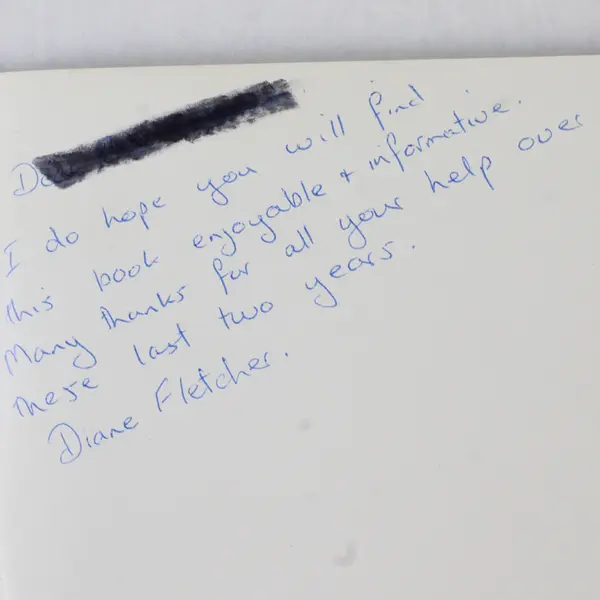 I do hope you will find
this book enjoyable + informative.
Many thanks for all your help over
these last two years.
Diane Fletcher.